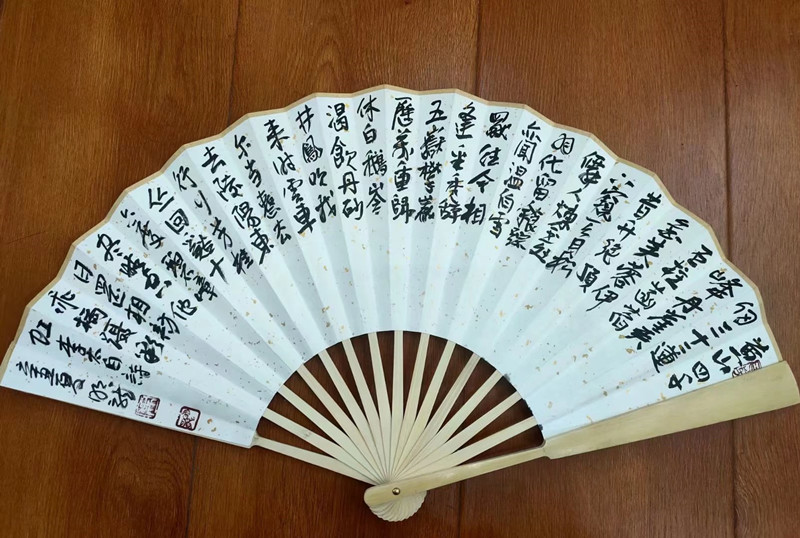 黄山四千
仞三十二蓮
峰丹崖夹
石柱菡萏
金芙蓉伊
昔升绝頂
下窺天目松
僊人煉玉處
羽化留餘踪
亦闻温伯雪
獨往今相
逢采秀辭
五嶽攀巖
歷萬重歸
休白鵝岑
渴飲丹砂
井鳳吹我
来时雲車
尔當整去
去陵陽東
行行芳桂
丛回谿十
六度碧嶂
尽晴空他
日還相訪
乘橋躡彩
虹李太白詩
辛丑夏